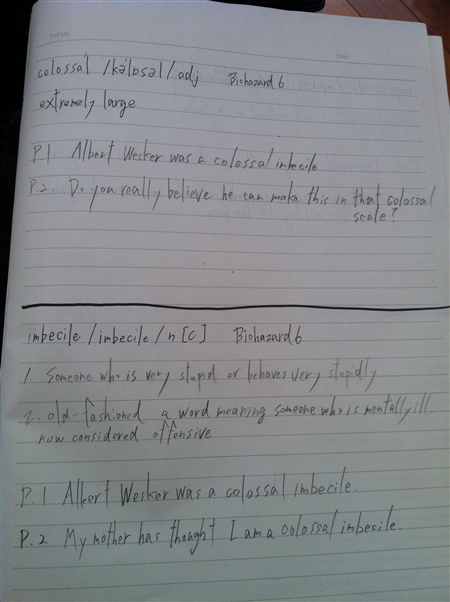 THEME
Date
colossal /kəˈlɒsəl/ adj Biohazard 6
extremely large
P.1 Albert Wesker was a colossal imbecile
P.2. Do you really believe he can make this in that colossal
scale?
imbecile /imbecile/ n [C] Biohazard 6
1. Someone who is very stupid or behaves very stupidly
2. old-fashioned a word meaning someone who is mentally ill
now considered offensive
P.1 Albert Wesker was a colossal imbecile.
P.2 My mother has thought I am a colossal imbecile.